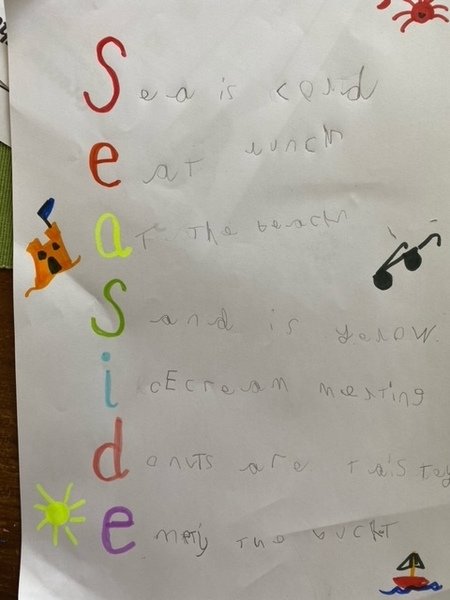 Sea is cold
eat lunch
at the beach
Sand is yelow.
icEcream melting
donuts are taistey
empty the bucket